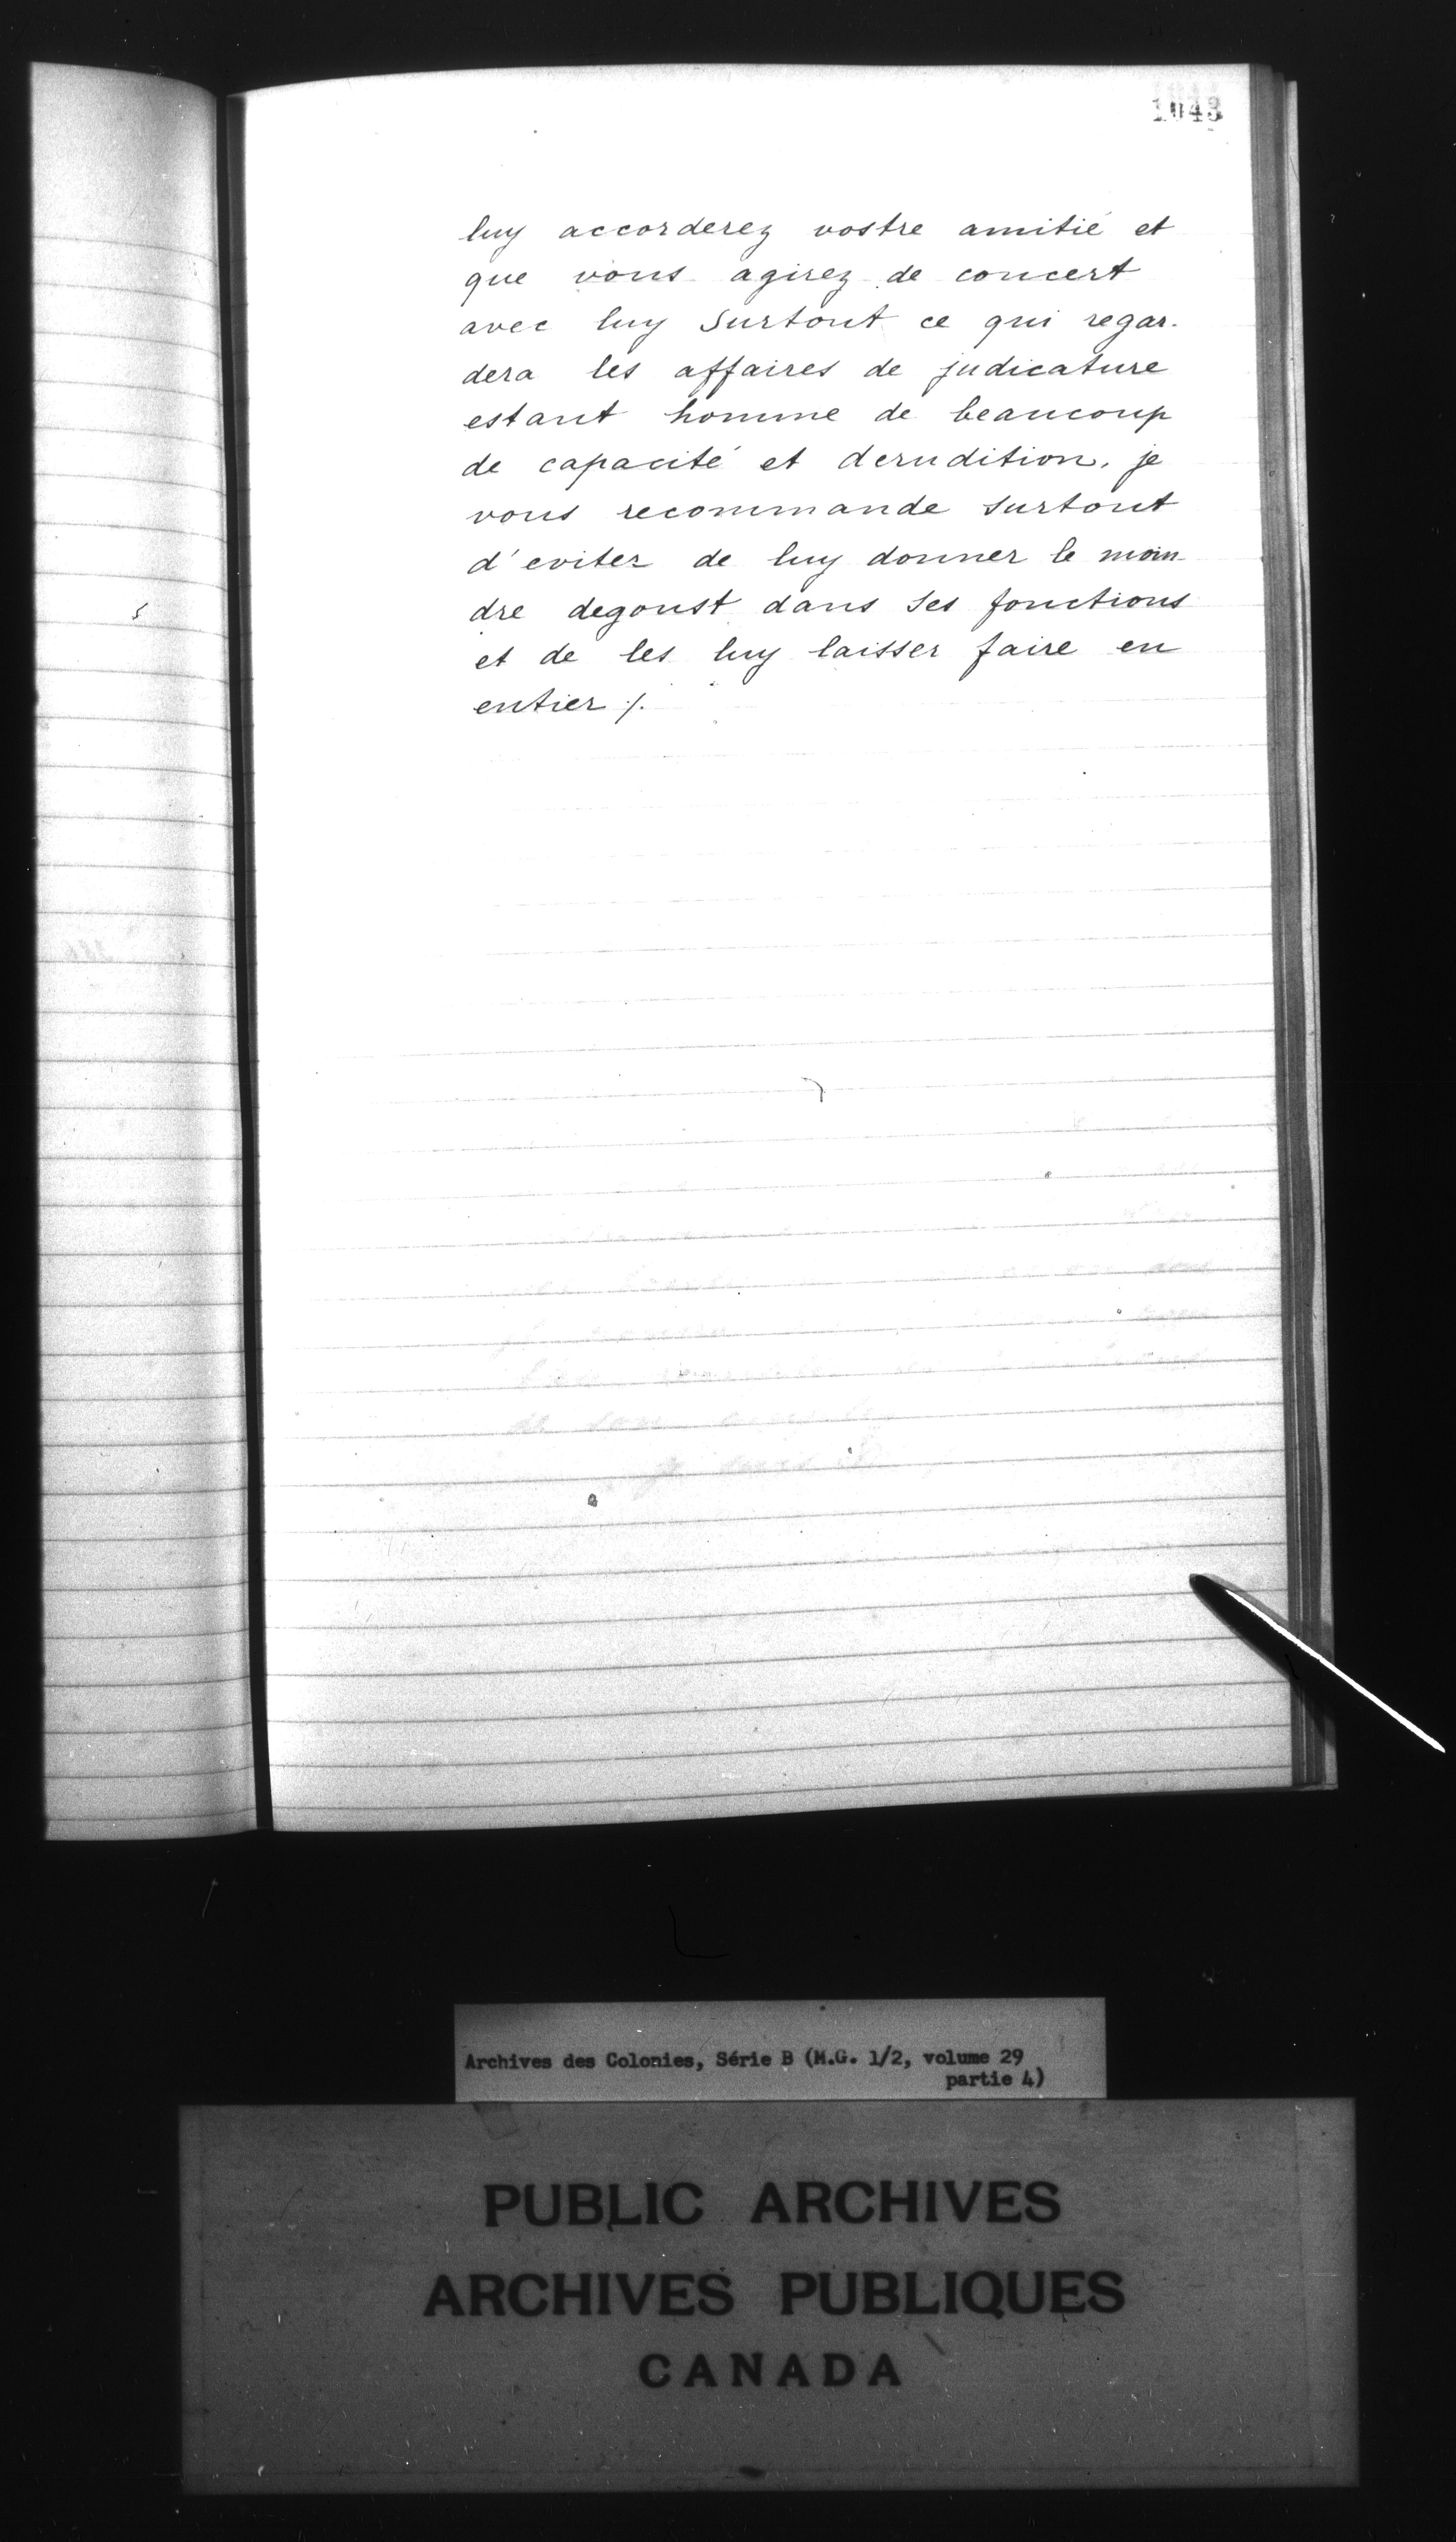 1043
luy accorderez vostre amitié et
que vous agirez de concert
avec luy surtout ce qui regar-
dera les affaires de judicature
estant homme de beaucoup
de capacité et derudition, je
vous recommande surtout
d'eviter de luy donner le moin-
dre degoust dans ses fonctions
et de les luy laisser faire en
entier ./.
Archives des Colonies, Série B (M.G. 1/2, volume 29
partie 4)
PUBLIC ARCHIVES
ARCHIVES PUBLIQUES
CANADA